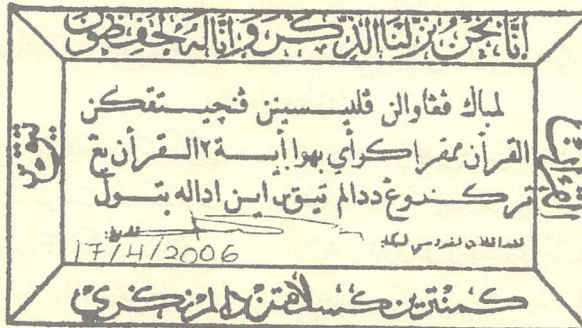 إنا نحن نزلنا الذكر وإنا له لحفظون
لمباݢ ڤڠاوالن ڤليسينن ڤنچيتقكن
القرآن ممڤراكوأي بهوا أية٢ القرآن يڠ
تركندوڠ ددالم تيقس اين اداله بتول
17/4/2006
كمنترين كسلامتن دالم نݢري
تيقس
القرآن